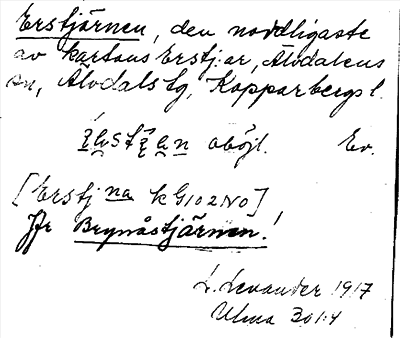 Erstjärnen, den nordligaste
av kartans Erstj:ar, Älvdalens
sn, Älvdals tg, Kopparbergs l.
oböjl. Ev.
[Erstj na k G102NO]
Jfr Brynåstjärnen!
L. Levander 1917
Ulma 301:4